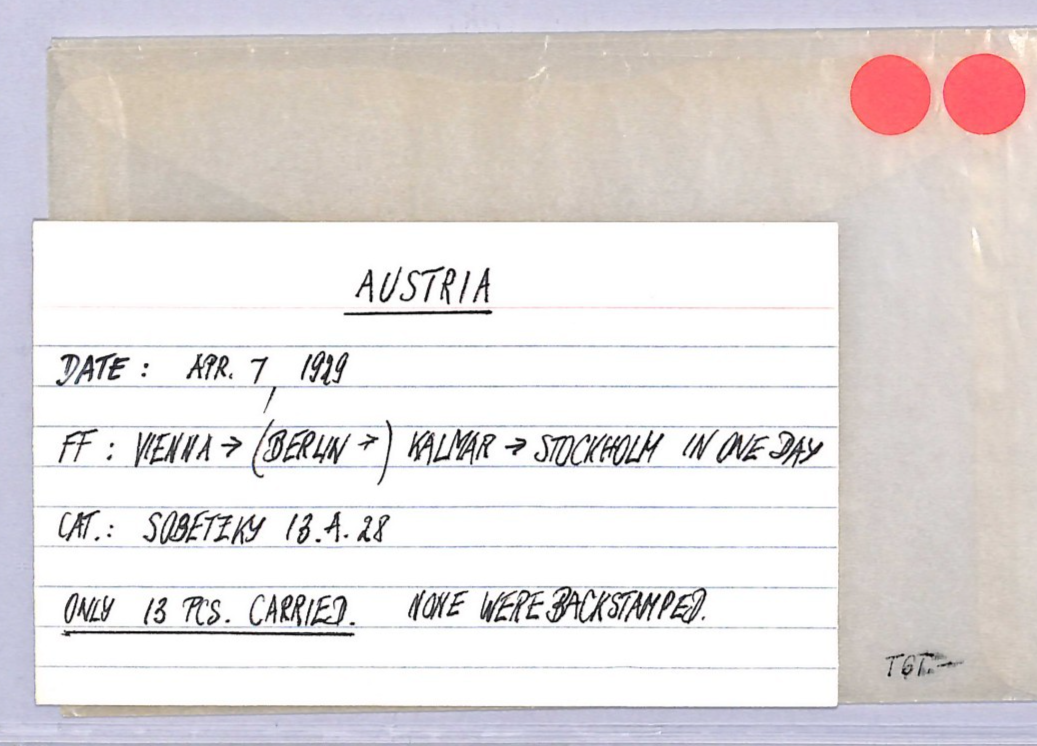 AUSTRIA
DATE : APR. 7, 1929
FF : VIENNA → (BERLIN →) KALMAR → STOCKHOLM IN ONE DAY
CAT.: SOBETZKY 13.A.28
ONLY 13 PCS. CARRIED. NONE WERE BACKSTAMPED.